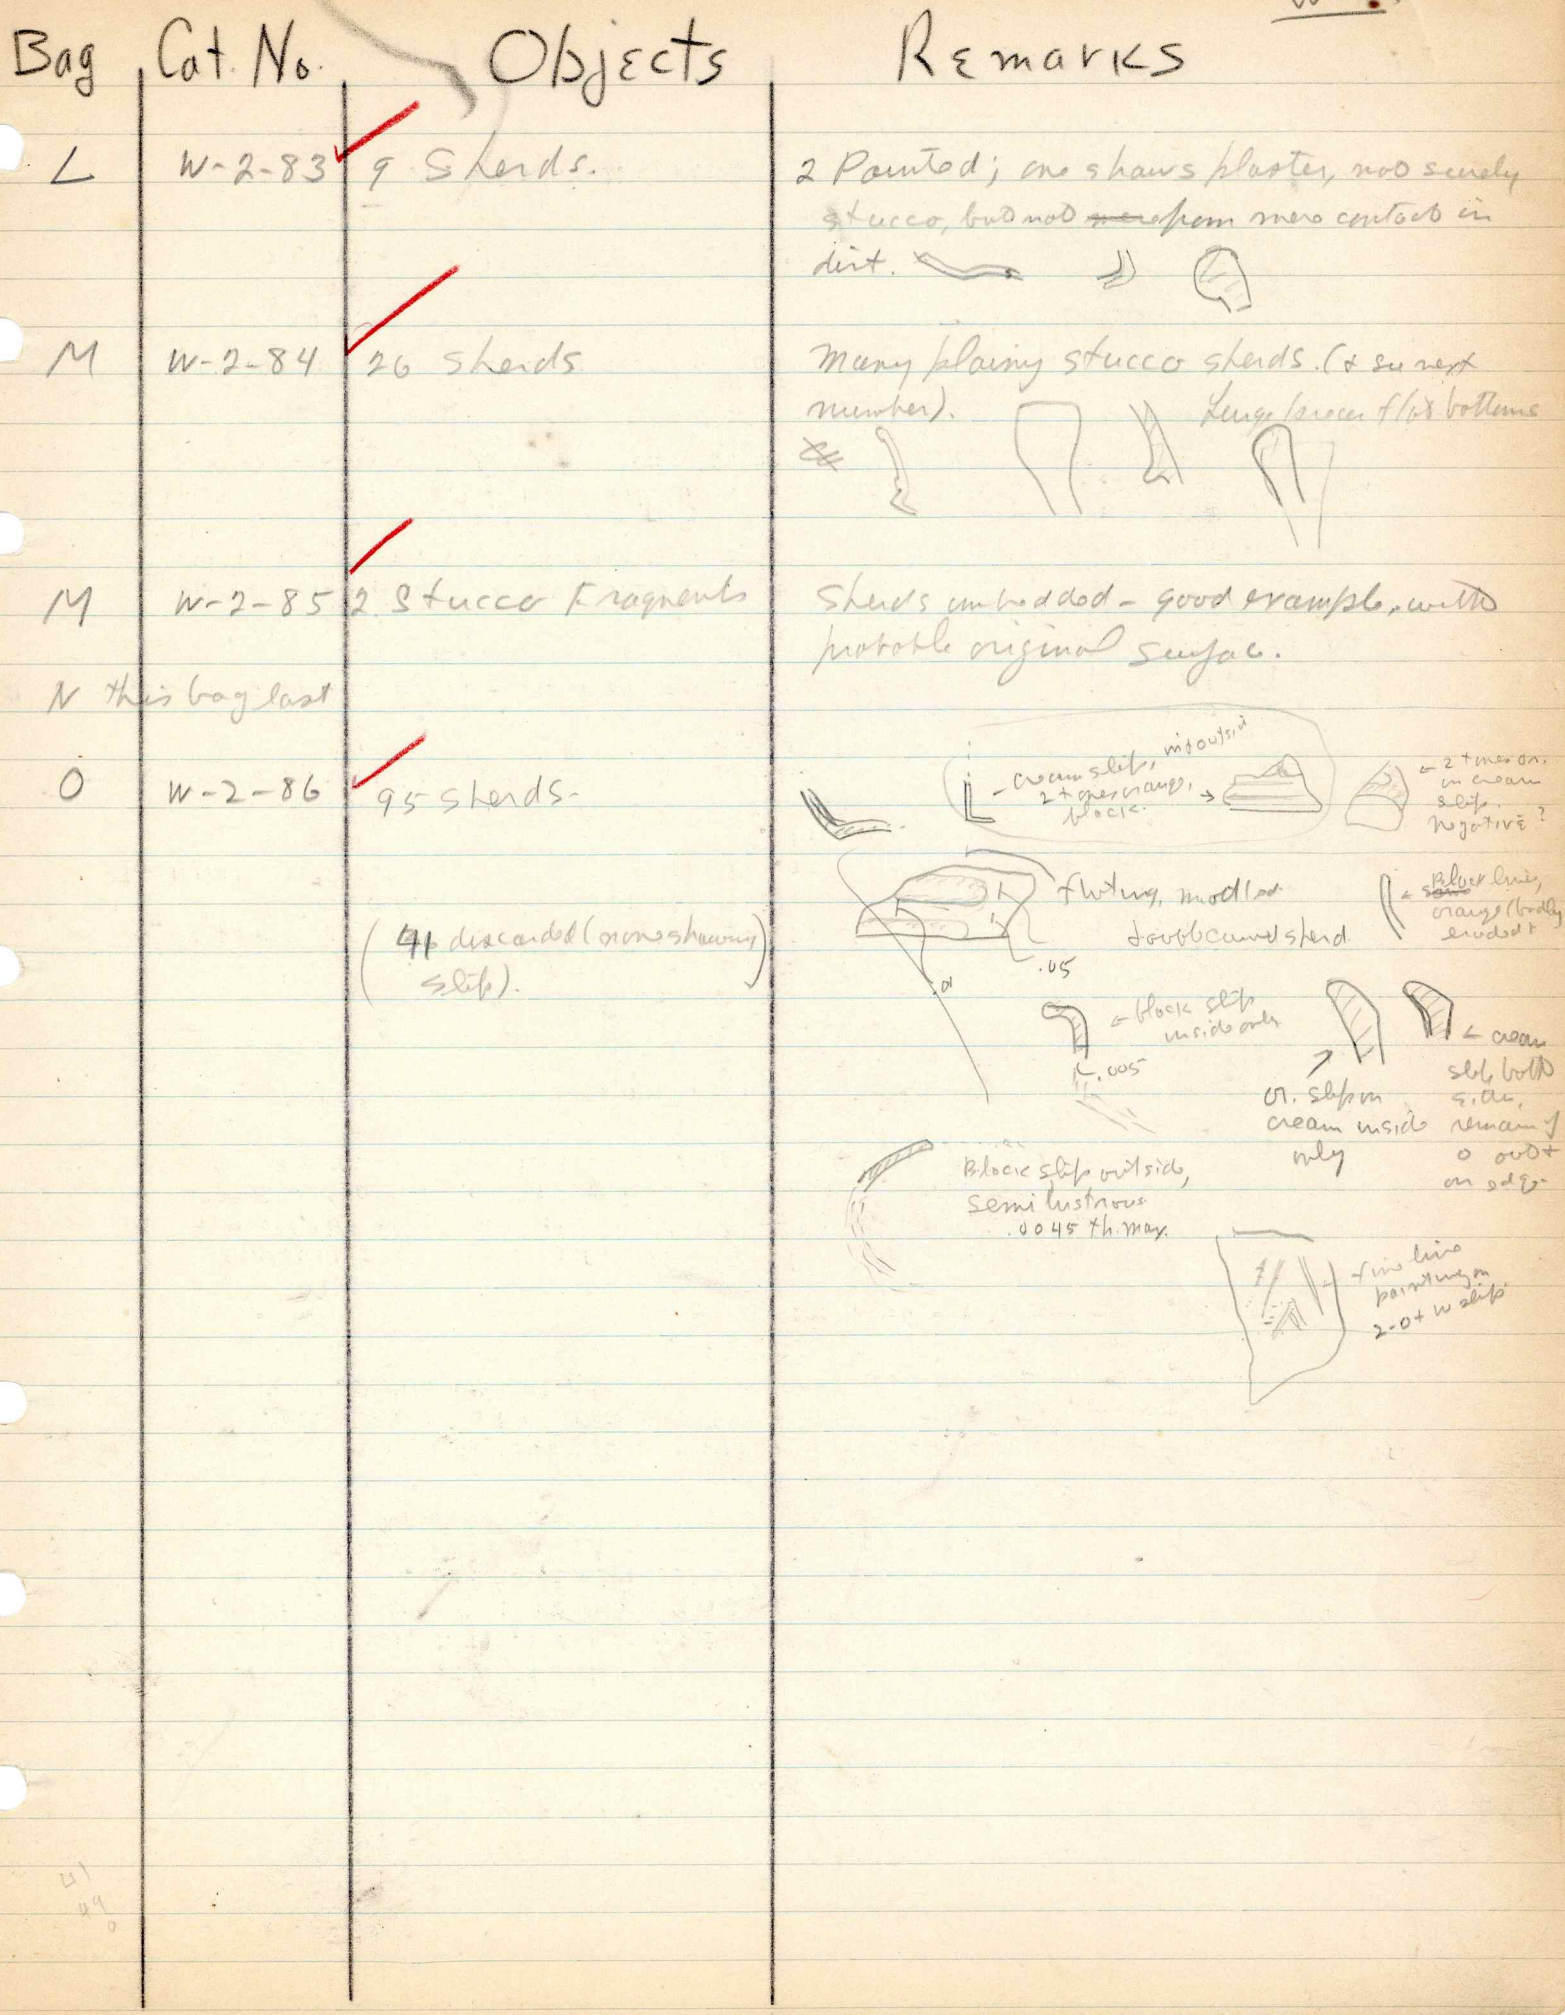 Bag Cat. No. Objects Remarks
L W-2-83 9 Sherds. 2 Painted; one shows plaster, not surely
stucco, but not from mere contact in
dirt.
M W-2-84 26 Sherds Many plainy stucco sherds. (+ see next
number). Large pieces flat bottoms
M W-2-85 2 Stucco Fragments Sherds imbedded - good example, with
probable original surface.
N this bag last
O W-2-86 95 sherds.
cream slip, in + outside
2 tones orange,
black.
← 2 tones or.
on cream
slip.
negative?
fluting, modled
+ double curved sherd
.05
.01
← Black line,
orange (badly
eroded)
(41 discarded (none showing
slip).)
← black slip
inside only
.005
or. slip on
cream inside
only
← cream
slip both
sides,
remains of
o out +
on edge
Black slip outside,
semi lustrous
.0045 th. max.
fine line
painting on
2-O + W slip